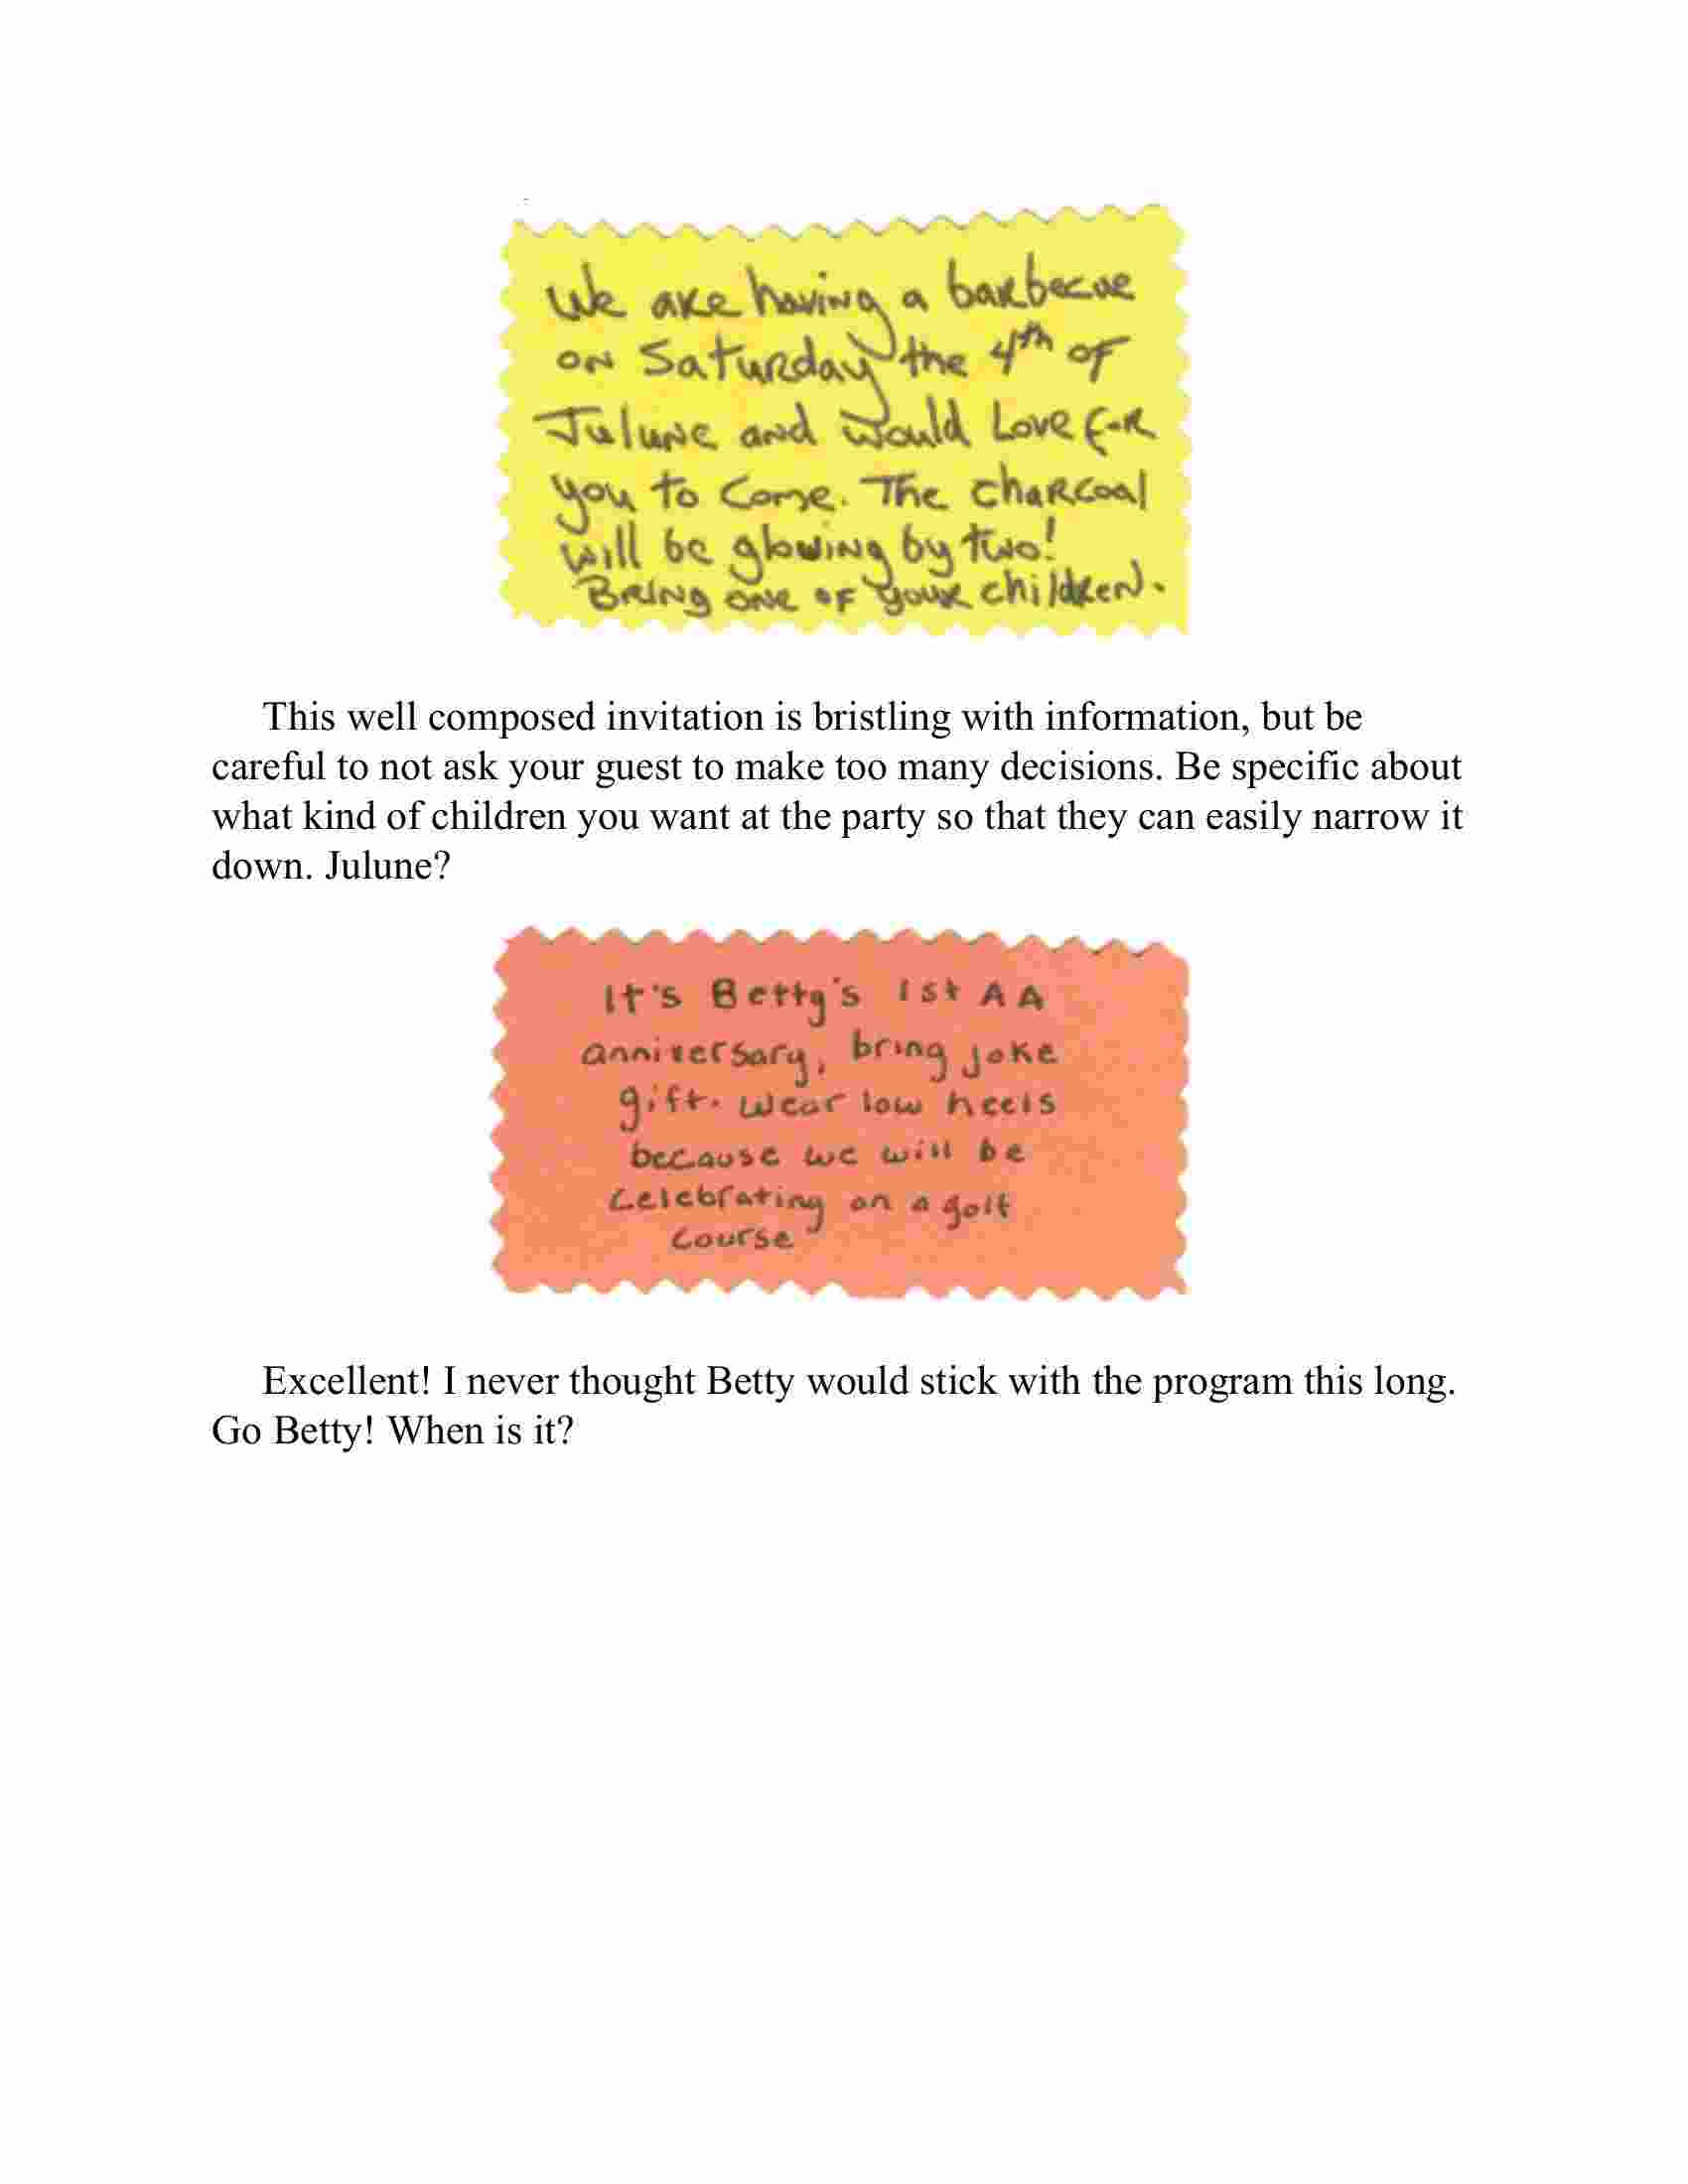 We are having a barbecue
on Saturday the 4th of
Julune and would Love for
you to come. The charcoal
will be glowing by two!
Bring one of your children.
This well composed invitation is bristling with information, but be
careful to not ask your guest to make too many decisions. Be specific about
what kind of children you want at the party so that they can easily narrow it
down. Julune?
It's Betty's 1st AA
anniversary, bring joke
gift. wear low heels
because we will be
celebrating on a golf
course
Excellent! I never thought Betty would stick with the program this long.
Go Betty! When is it?